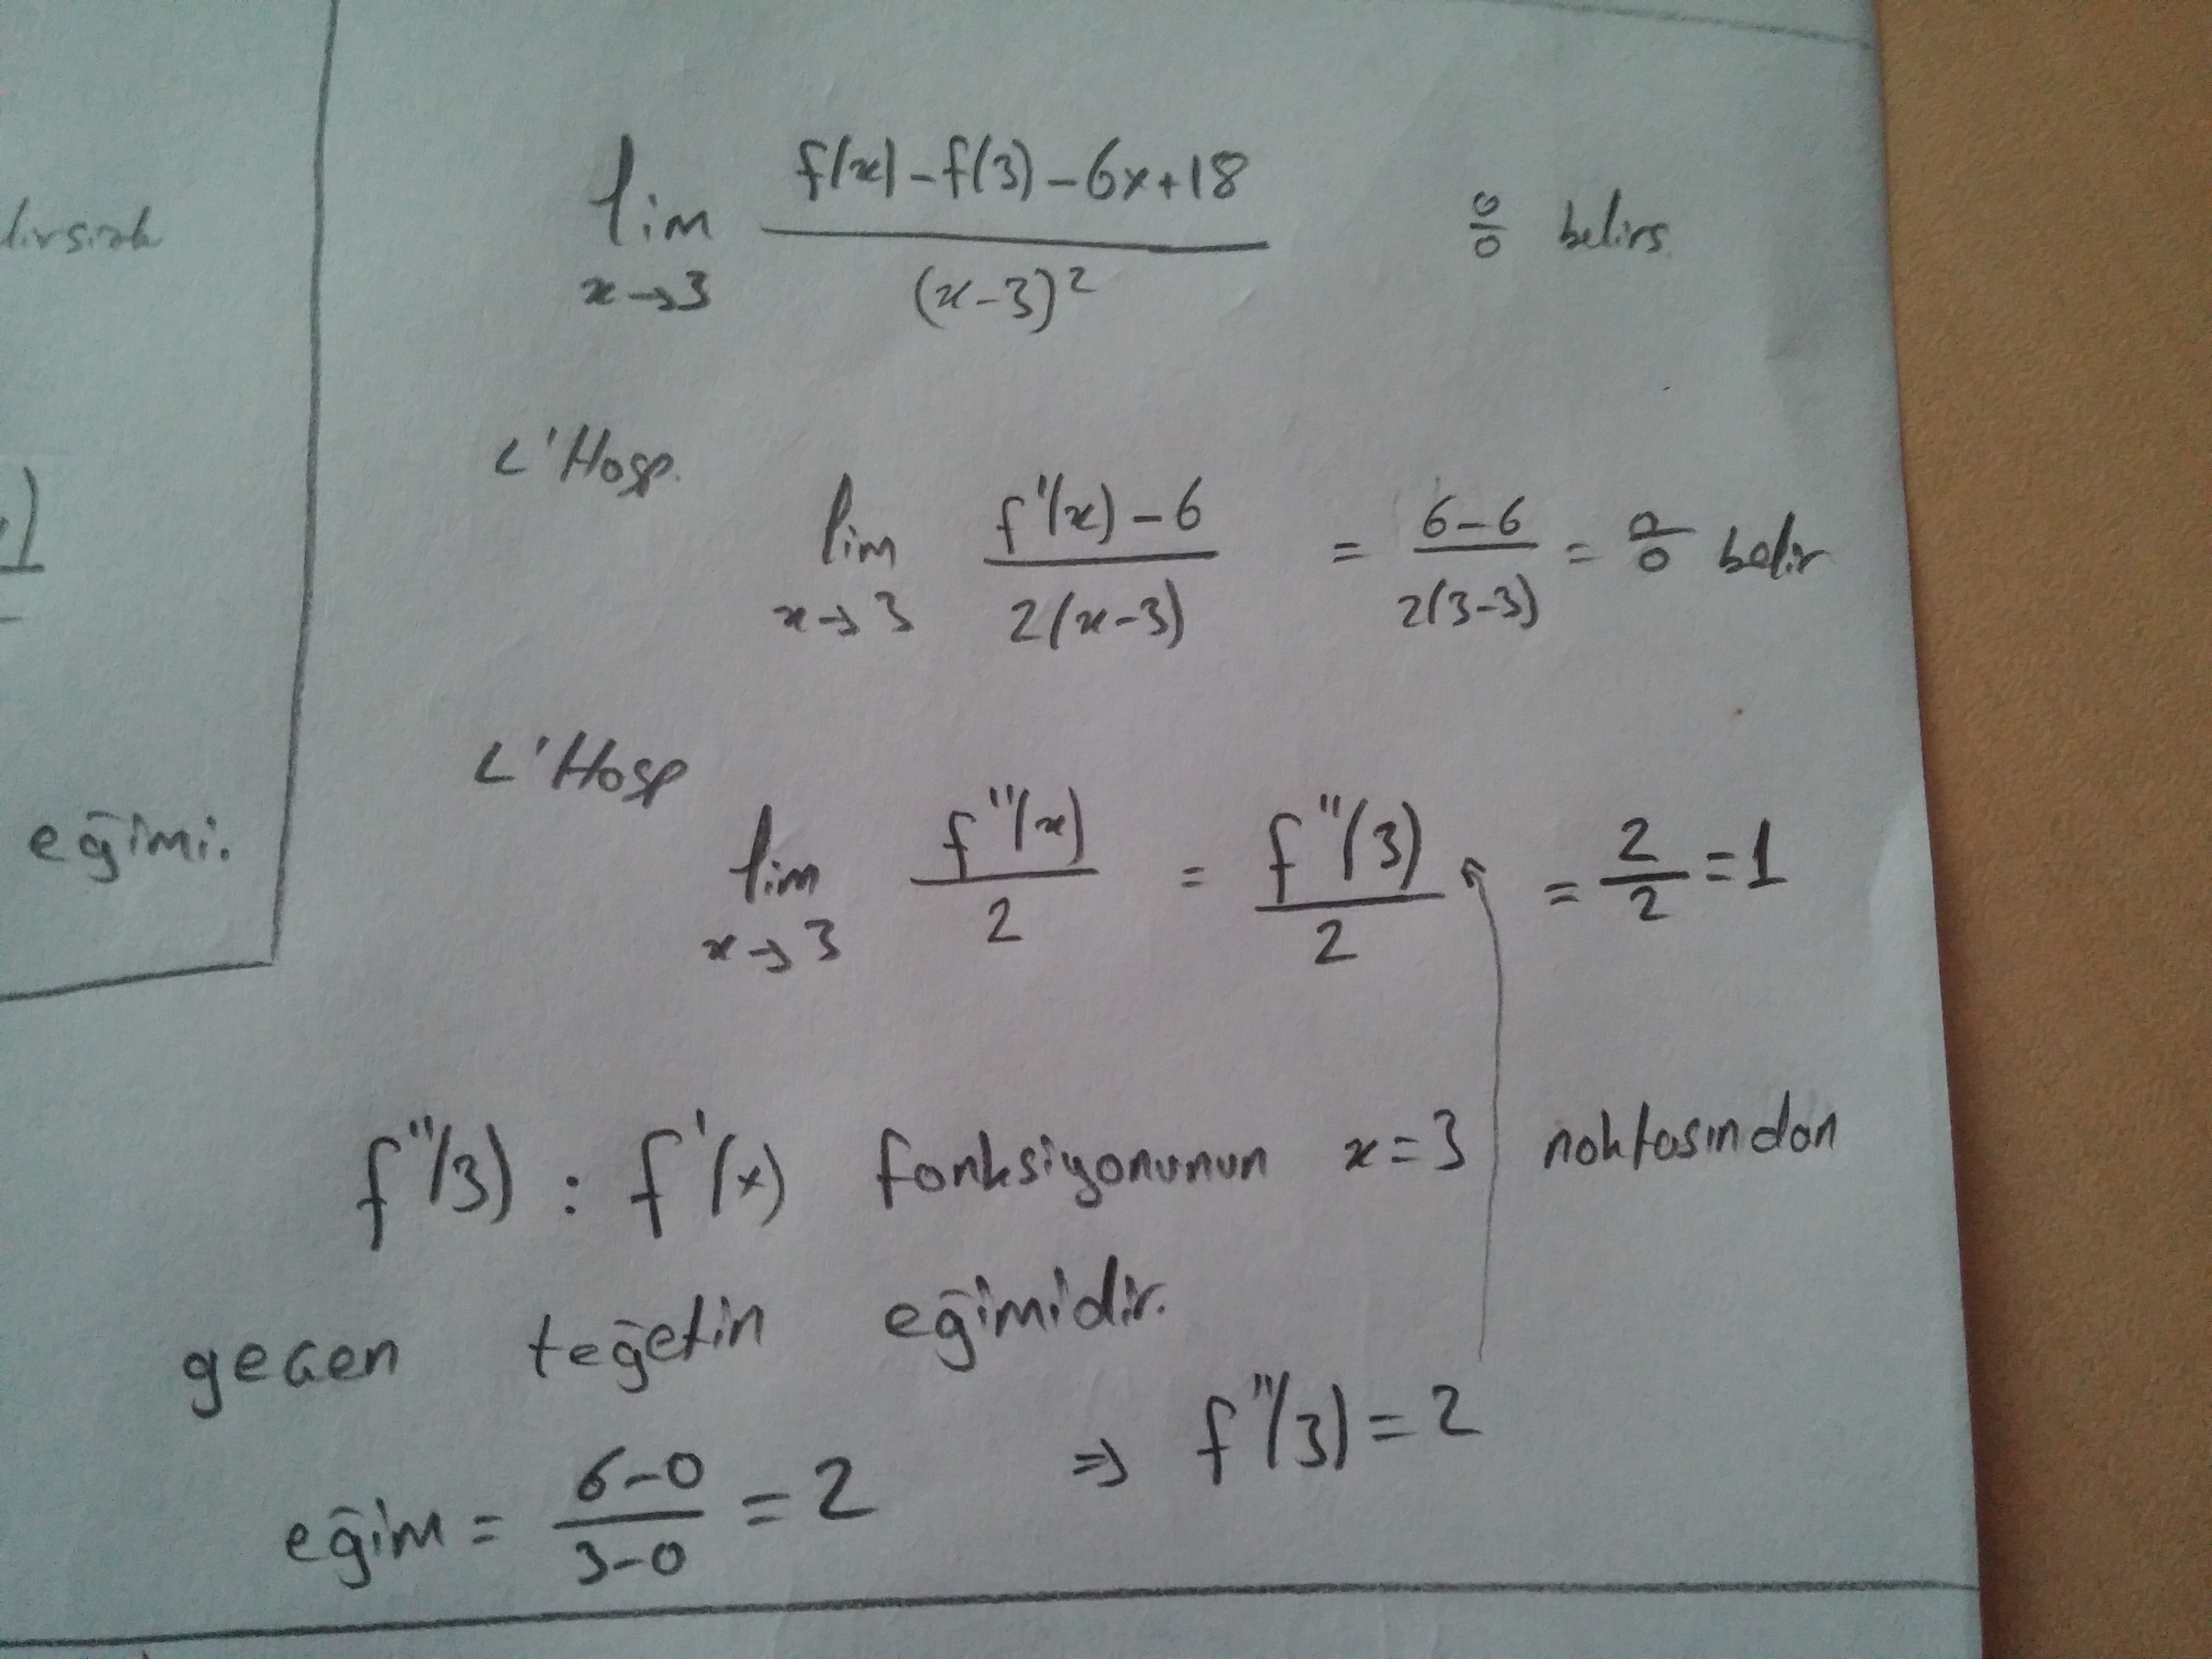 lim f(x) - f(3) - 6x + 18 / (x-3)² 0/0 belirs.
x→3
L'Hosp.
lim f'(x) - 6 / 2(x-3) = 6-6 / 2(3-3) = 0/0 belir
x→3
L'Hosp
lim f''(x) / 2 = f''(3) / 2 = 2/2 = 1
x→3
eğimi.
f''(3) : f'(x) fonksiyonunun x=3 noktasından
geçen teğetin eğimidir.
eğim = 6-0 / 3-0 = 2 ⇒ f''(3) = 2